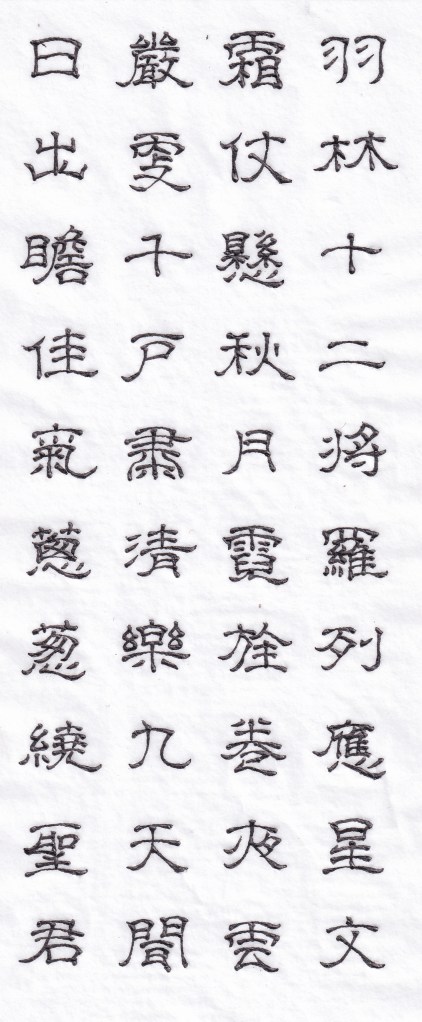 羽林十二將羅列應星文
霜仗懸秋月霓旌卷夜雲
嚴更千戶肅清樂九天聞
日出瞻佳氣蔥葱繞聖君